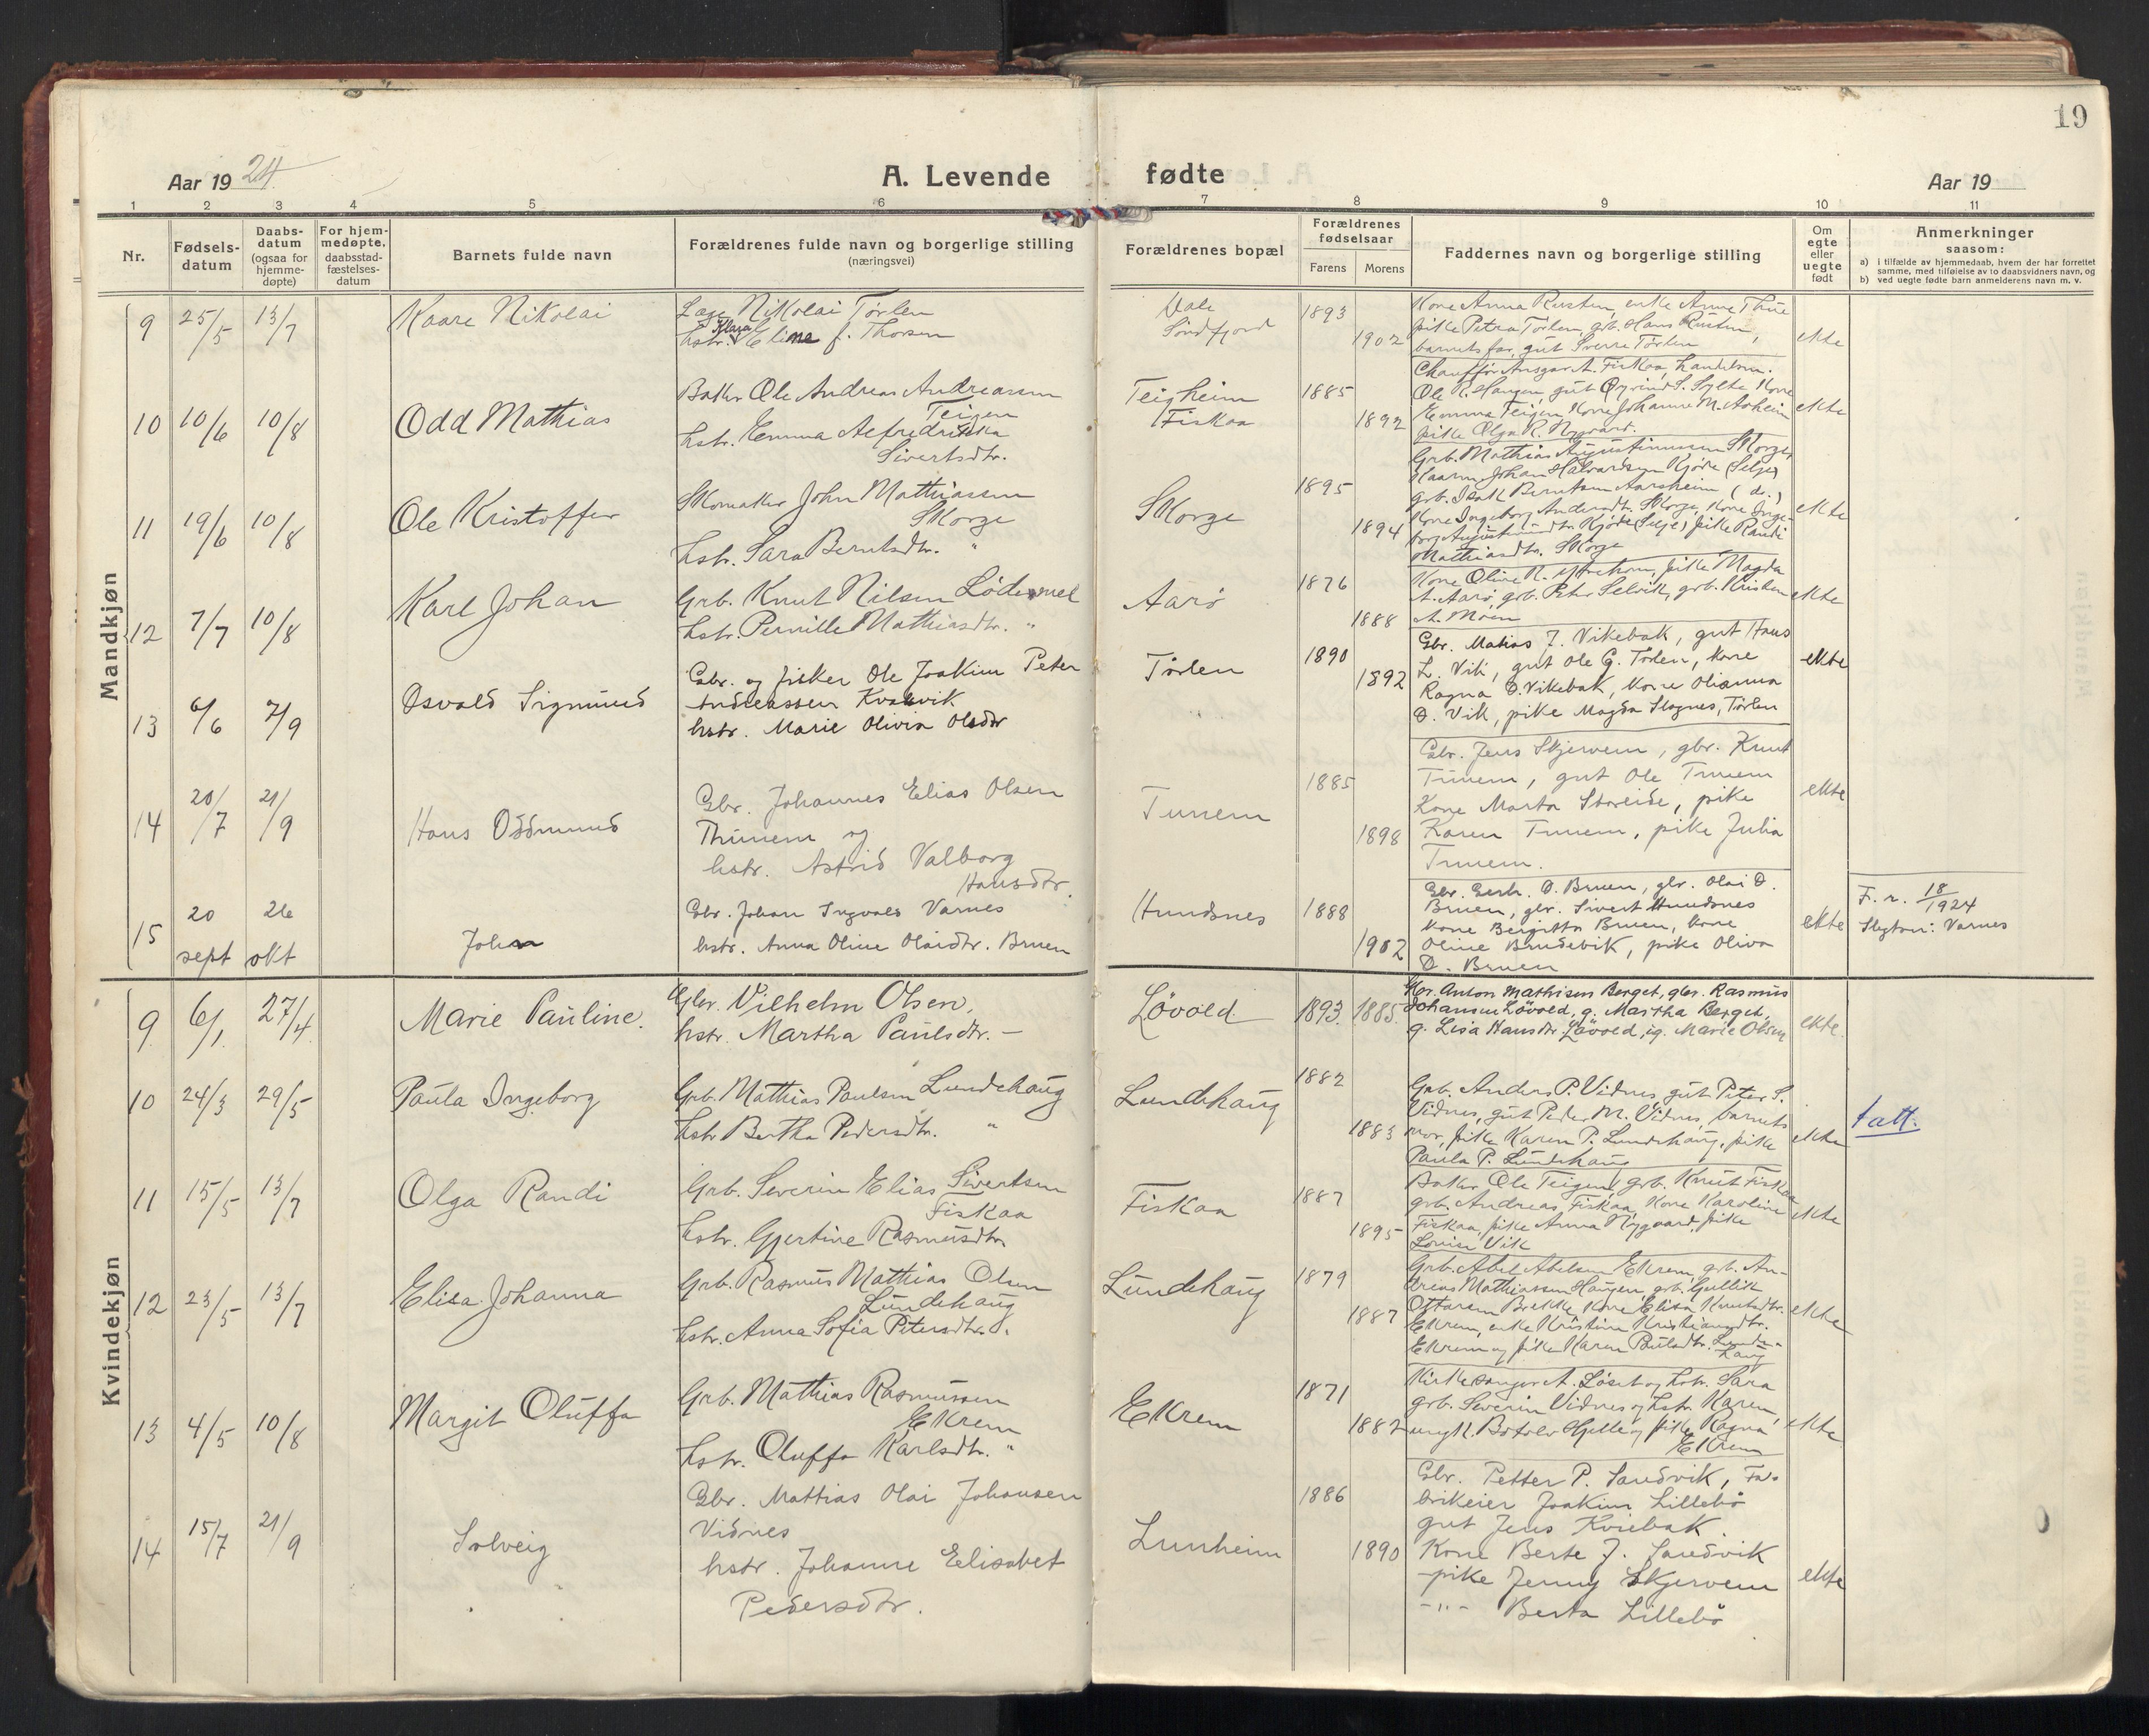 19
Aar 1924
A. Levende
fødte
Aar 19
1 2 3 4 5 6 7 8 9 10 11
Nr.
Fødsels-
datum
Daabs-
datum
(ogsaa for
hjemme-
døpte)
For hjem-
medøpte,
daabsstad-
fæstelses-
datum
Barnets fulde navn
Forældrenes fulde navn og borgerlige stilling
(næringsvei)
Forældrenes bopæl
Forældrenes
fødselsaar
Farens
Morens
Faddernes navn og borgerlige stilling
Om
egte
eller
uegte
født
Anmerkninger
saasom:
a) i tilfælde av hjemmedaab, hvem der har forrettet
samme, med tilføielse av to daabsvidners navn, og
b) ved uegte fødte barn anmelderens navn m. v.
Mandkjøn
9 25/5 13/7 Kaare Nikolai
Læge Nikolai Tørlen
hstr. Klara Eline f. Thorsen
Dale
Søndfjord
1893
1902
Kone Anna Rusten, enke Anne Thue
pike Petra Tørlen, gb. Hans Rusten,
barnets far, gut Sverre Tørlen
ekte
10 10/6 10/8 Odd Mathias
Baker Ole Andreas Andreassen
Teigen
hstr. Emma Alfredrikka
Sivertsdtr.
Teigheim
Fiskaa
1885
1892
Chauffør Ansgar A. Fiskaa, handelsm.
Ole R. Haugen, gut Øyvind S. Sylte, Kone
Emma Teigen, Kone Johanne M. Aaheim
pike Olga R. Nygaard.
ekte
11 19/6 10/8 Ole Kristoffer
Skomaker John Mathiassen
Skorge
hstr. Sara Berntsdtr. "
Skorge
1895
1894
Grb. Mathias Augustinussen Skorge,
Kaarm. Johan Halvardsen Kjøde (Selje)
grb. Isak Berntsen Aarsheim (do.)
Kone Ingeborg Andersdtr. Skorge, Kone Inge-
borg Augustinusdtr. Kjøde (Selje) pike Randi
Mathiasdtr. Skorge
ekte
12 7/7 10/8 Karl Johan
Grb. Knut Nilsen Lødemel
hstr. Pernille Mathiasdtr. "
Aarø
1876
1888
Kone Oline R. Ytrehorn, pike Magda
A. Aarø, grb. Peter Selvik, grb. Kristen
A. Moen
ekte
13 6/6 7/9 Osvald Sigmund
Gbr. og fisker Ole Joakim Peter
Andreassen Kvalsvik
hstr. Marie Olivia Olsdtr
Tørlen
1890
1892
Gbr. Matias J. Vikebak, gut Hans
L. Vik, gut Ole G. Tørlen, Kone
Ragna O. Vikebak, kone Olianna
D. Vik, pike Magda Slagnes, Tørlen
ekte
14 20/7 21/9 Hans Oddmund
Gbr. Johannes Elias Olsen
Thunem og
hstr. Astrid Valborg
Hansdtr.
Tunem
1885
1898
Gbr. Jens Skjervem, gbr. Knut
Tunem, gut Ole Tunem
Kone Marta Storeide, pike
Karen Tunem, pike Julia
Tunem.
ekte
15 20 sept 26 okt John
Gbr. Johan Ingvald Varnes
hstr. Anna Oline Olaidtr. Bruen
Hundsnes
1888
1902
Gbr. Gerh. O. Bruen, gbr. Olai O.
Bruen, gbr. Sivert Hundsnes
Kone Bergitta Bruen, kone
Oline Brudevik, pike Oliva
O. Bruen
ekte
F. r. 18/1924
Slegtsn: Varnes
Kvindekjøn
9 6/1. 27/4 Marie Pauline.
Gbr. Vilhelm Olsen,
hstr. Martha Paulsdtr. —
Løvold
1893. 1885.
Gbr. Anton Mathisen Berget, gbr. Rasmus
Johansen Løvold, g. Martha Berget,
g. Lisa Hansdtr. Løvold, ig. Marie Olsen
ekte.
10 24/3 29/5 Paula Ingeborg
Grb. Mathias Paulsen Lundehaug
hstr Bertha Pedersdtr. "
Lundehaug
1882
1883
Grb. Anders P. Vidnes, gut Peter S.
Vidnes, gut Peder M. Vidnes, barnets
mor, pike Karen P. Lundehaug, pike
Paula P. Lundehaug
ekte
t att.
11 15/5 13/7 Olga Randi
Grb. Severin Elias Sivertsen
Fiskaa
hstr. Gjertine Rasmusdtr.
Fiskaa
1887
1895
Baker Ole Teigen, grb. Knut Fiskaa
grb. Andreas Fiskaa, Kone Karoline
Fiskaa, pike Anna Nygaard, pike
Lovise Vik
ekte
12 23/5 13/7 Elisa Johanna
Grb. Rasmus Mathias Olsen
Lundehaug
hstr. Anna Sofia Petersdtr. "
Lundehaug
1879
1887
Grb. Abel Abelsen Ekrem, grb. An-
dreas Mathiassen Haugen, grb. Gullik
Ottarsen Brekke, Kone Elisa Knutsdtr.
Ekrem, enke Kristine Kristiansdtr.
Ekrem og pike Karen Paulsdtr. Lunde-
haug
ekte
13 4/5 10/8 Margit Oluffa
Grb. Mathias Rasmussen
Ekrem
hstr. Oluffa Karlsdtr. "
Ekrem
1871
1882
Kirkesanger A. Løset og hstr. Sara
grb. Severin Vidnes og hstr. Karen,
ungk. Botolv Hjelle og pike Ragna
Ekrem
ekte
14 15/7 21/9 Solveig
Gbr. Mattias Olai Johansen
Vidnes
hstr. Johanne Elisabet
Pedersdtr.
Lunheim
1886
1890
Gbr. Petter P. Sandvik, Fa-
brikeier Joakim Lillebø
gut Jens Kviebak.
Kone Berte J. Sandvik
pike Jenny Skjervem
-"- Berta Lillebø
ekte